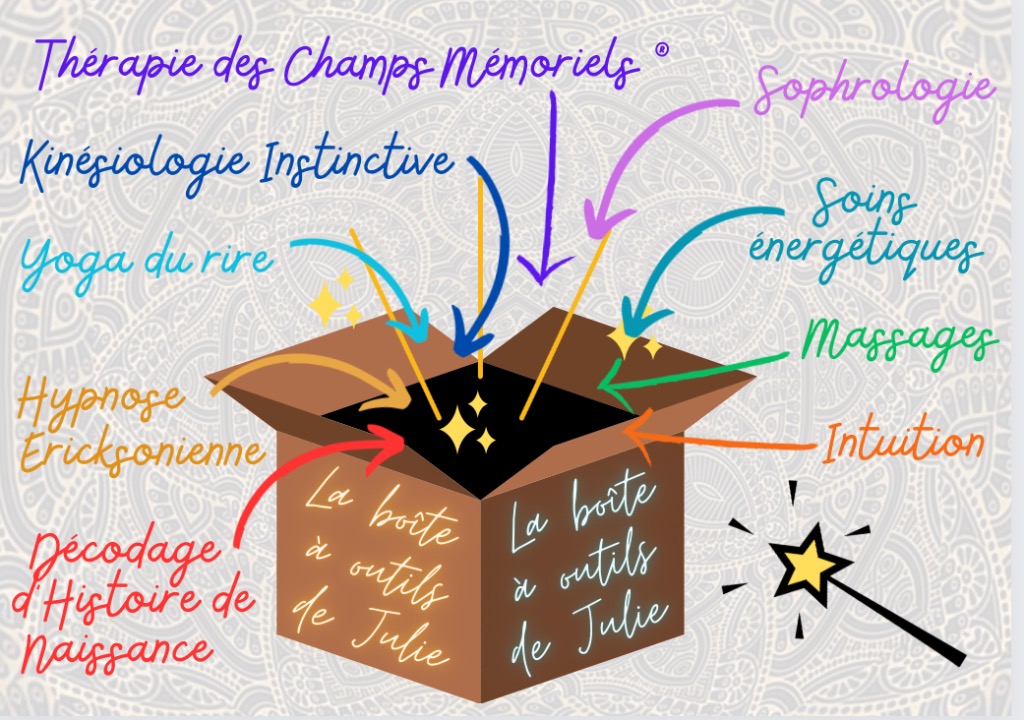 Thérapie des Champs Mémoriels ®
Sophrologie
Kinésiologie Instinctive
Soins
énergétiques
Yoga du rire
Massages
Hypnose
Ericksonienne
Intuition
Décodage
d'Histoire de
Naissance
La boîte
à outils
de Julie
La boîte
à outils
de Julie